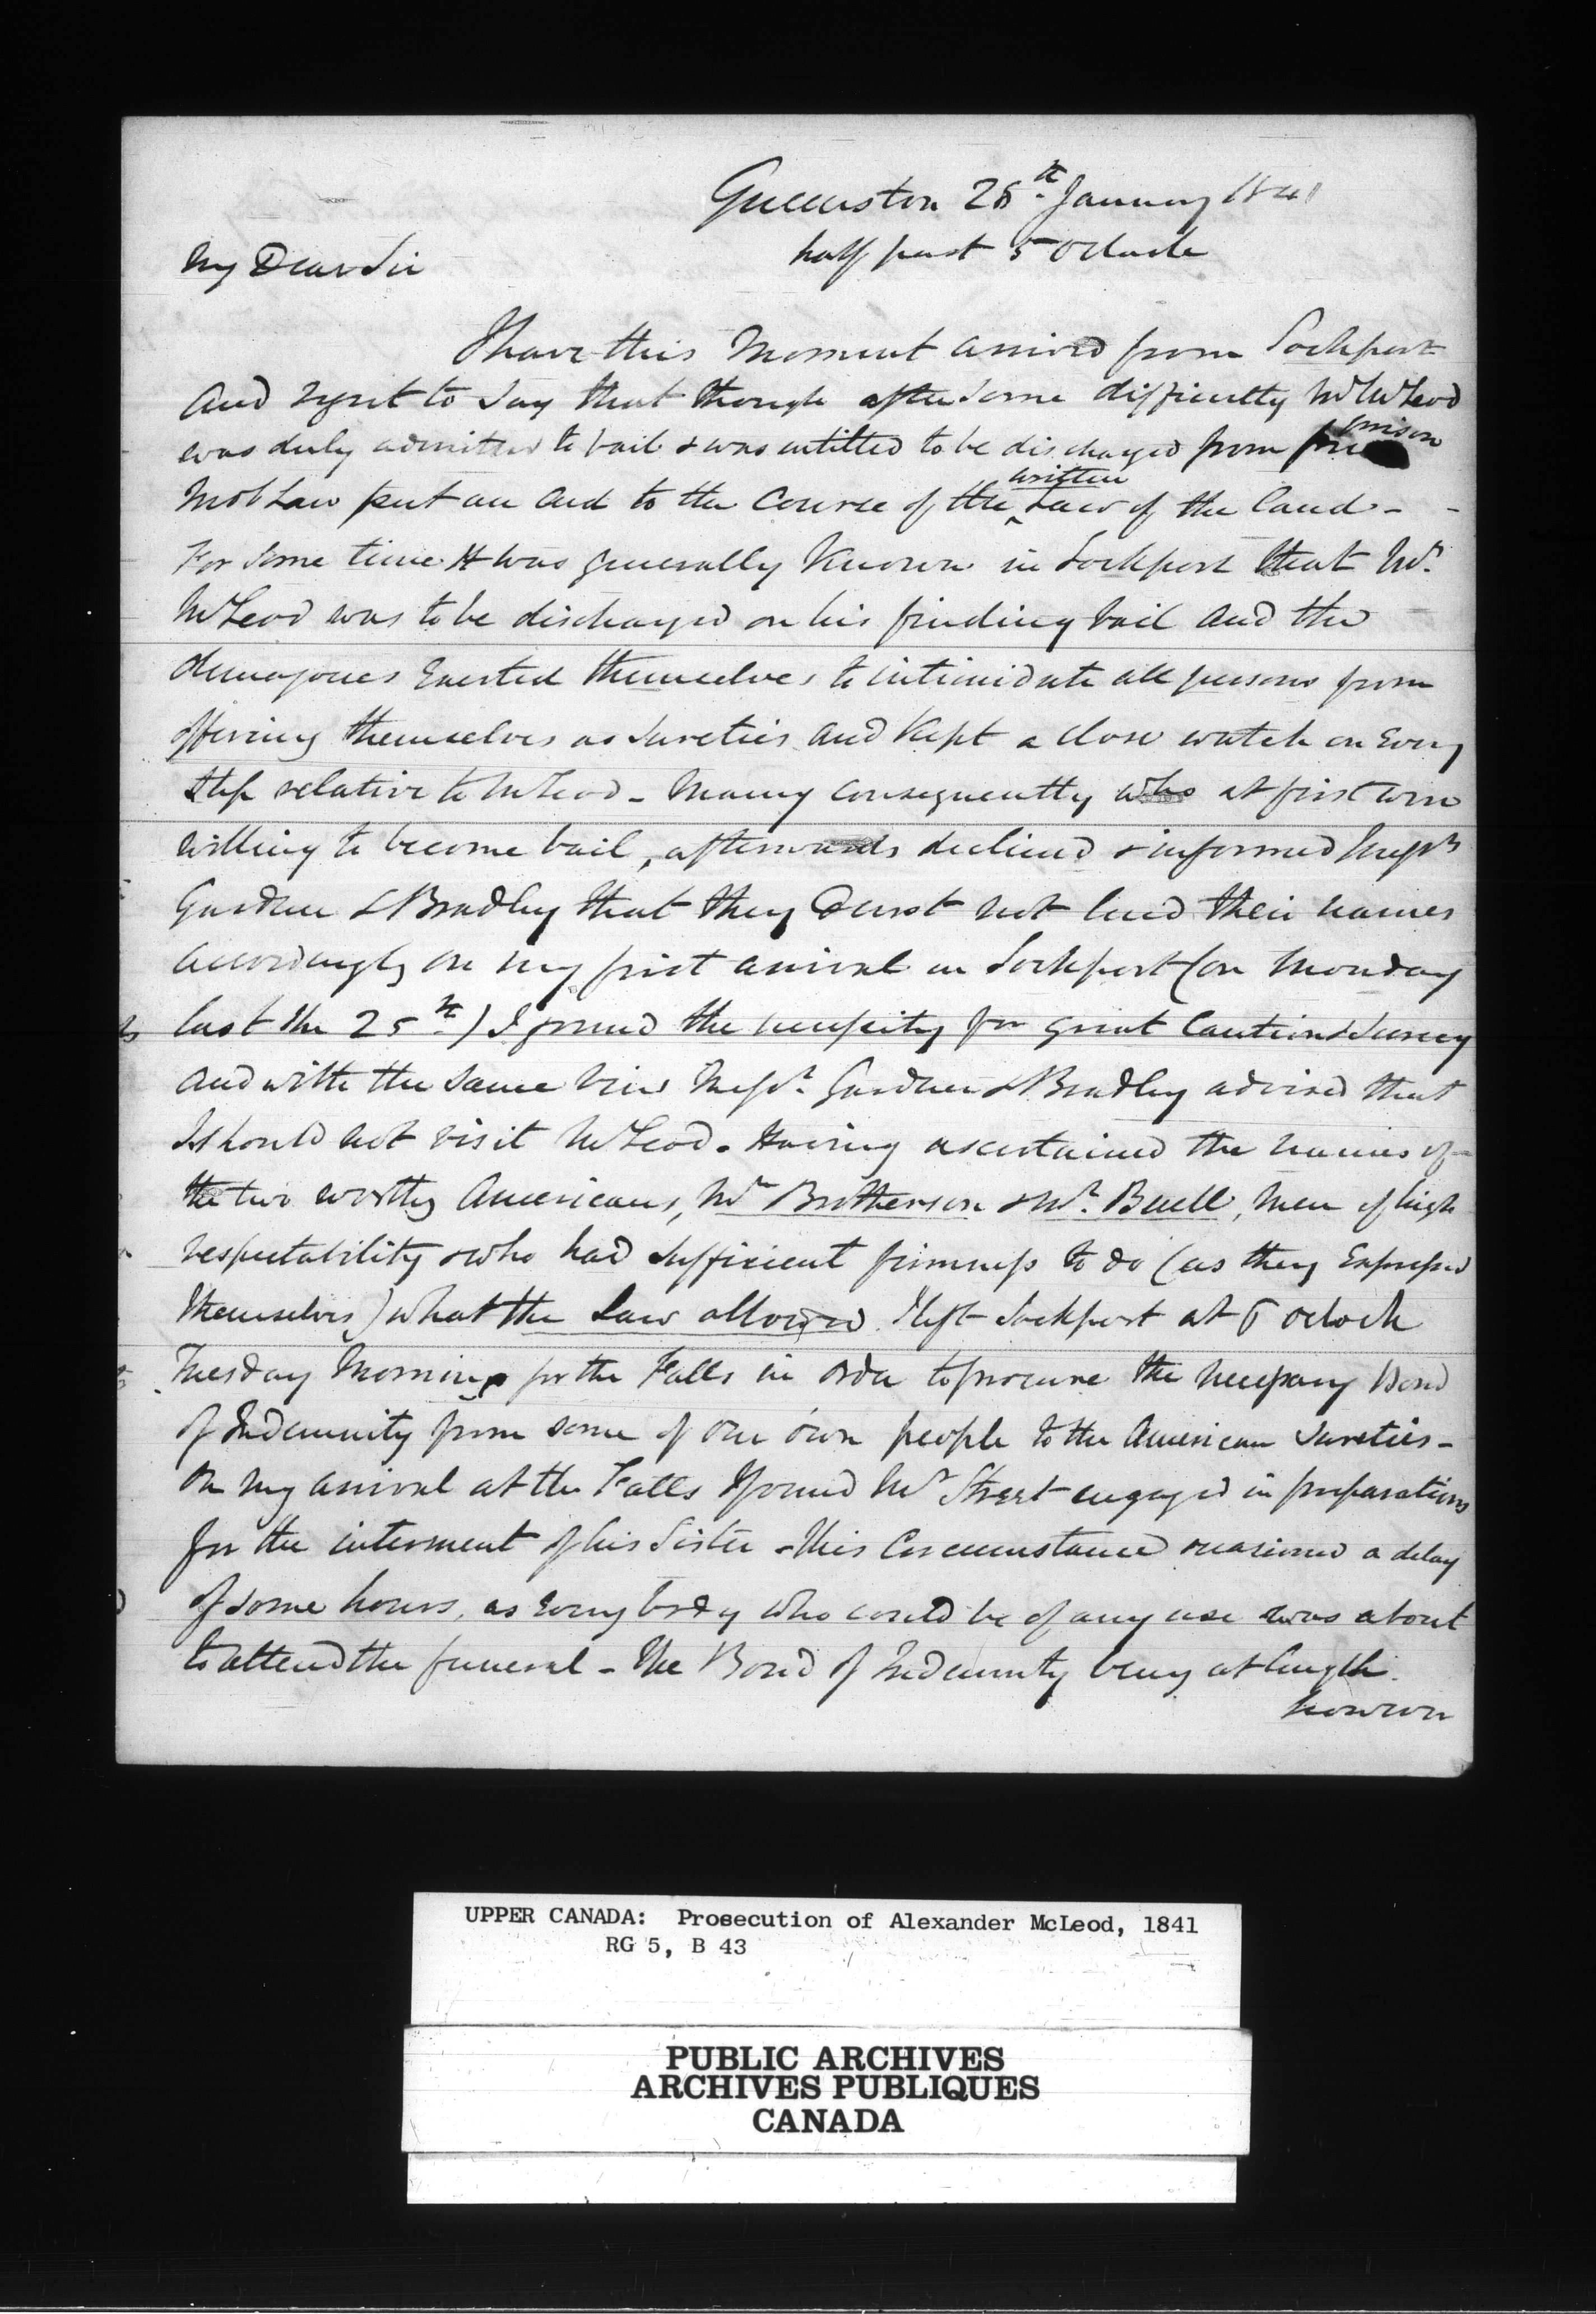 Queenston 28th January 1841
half past 5 Oclock
My Dear Sir
I have this Moment arrived from Lockport
and regret to say that though after some difficulty Mr McLeod
was duly admitted to bail & was intitled to be discharged from prison
Mob Law put an end to the Course of the written Law of the Land - -
For some time it was generally Known in Lockport that Mr
McLeod was to be discharged on his finding bail and the
demagogues Exerted themselves to intimidate all persons from
offering themselves as sureties and Kept a close watch on Every
Step relative to McLeod - Many consequently who at first were
willing to become bail, afterwards declined & informed Messrs
Gardner & Bradley that they Durst not lend their names
accordingly on my first arrival in Lockport (on Monday
last the 25th) I found the necessity for great Caution & secrecy
and with the same view Messrs Gardner & Bradley advised that
I should not visit McLeod. Having ascertained the names of
the two worthy Americans, Mr Brotherson & Mr Buell, men of high
respectability & who had sufficient firmness to do (as they Expressed
themselves) what the Law allowed. I left Lockport at 6 oclock
Tuesday Morning for the Falls in order to procure the necessary Bond
of Indemnity from some of our own people to the American Sureties -
On my arrival at the Falls I found Mr Street engaged in preparations
for the interment of his Sister - this Circumstance occasioned a delay
of some hours, as Every body who could be of any use was about
to attend the funeral - The Bond of Indemnity being at length
however
UPPER CANADA: Prosecution of Alexander McLeod, 1841
RG 5, B 43
PUBLIC ARCHIVES
ARCHIVES PUBLIQUES
CANADA